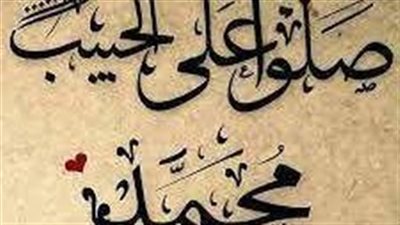 صَلُّوا عَلَى الحَبِيبِ
مُحَمَّد